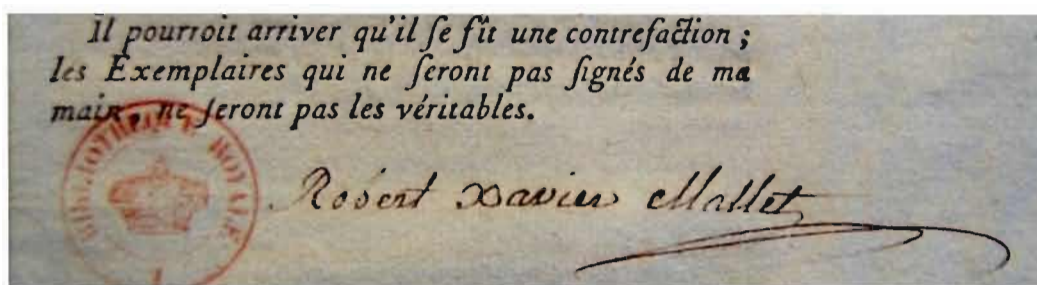 Il pourroit arriver qu'il ſe fît une contrefaction ;
les Exemplaires qui ne ſeront pas ſignés de ma
main, ne ſeront pas les véritables.
BIBLIOTHEQUE ROYALE
Robert Xavier Mallet